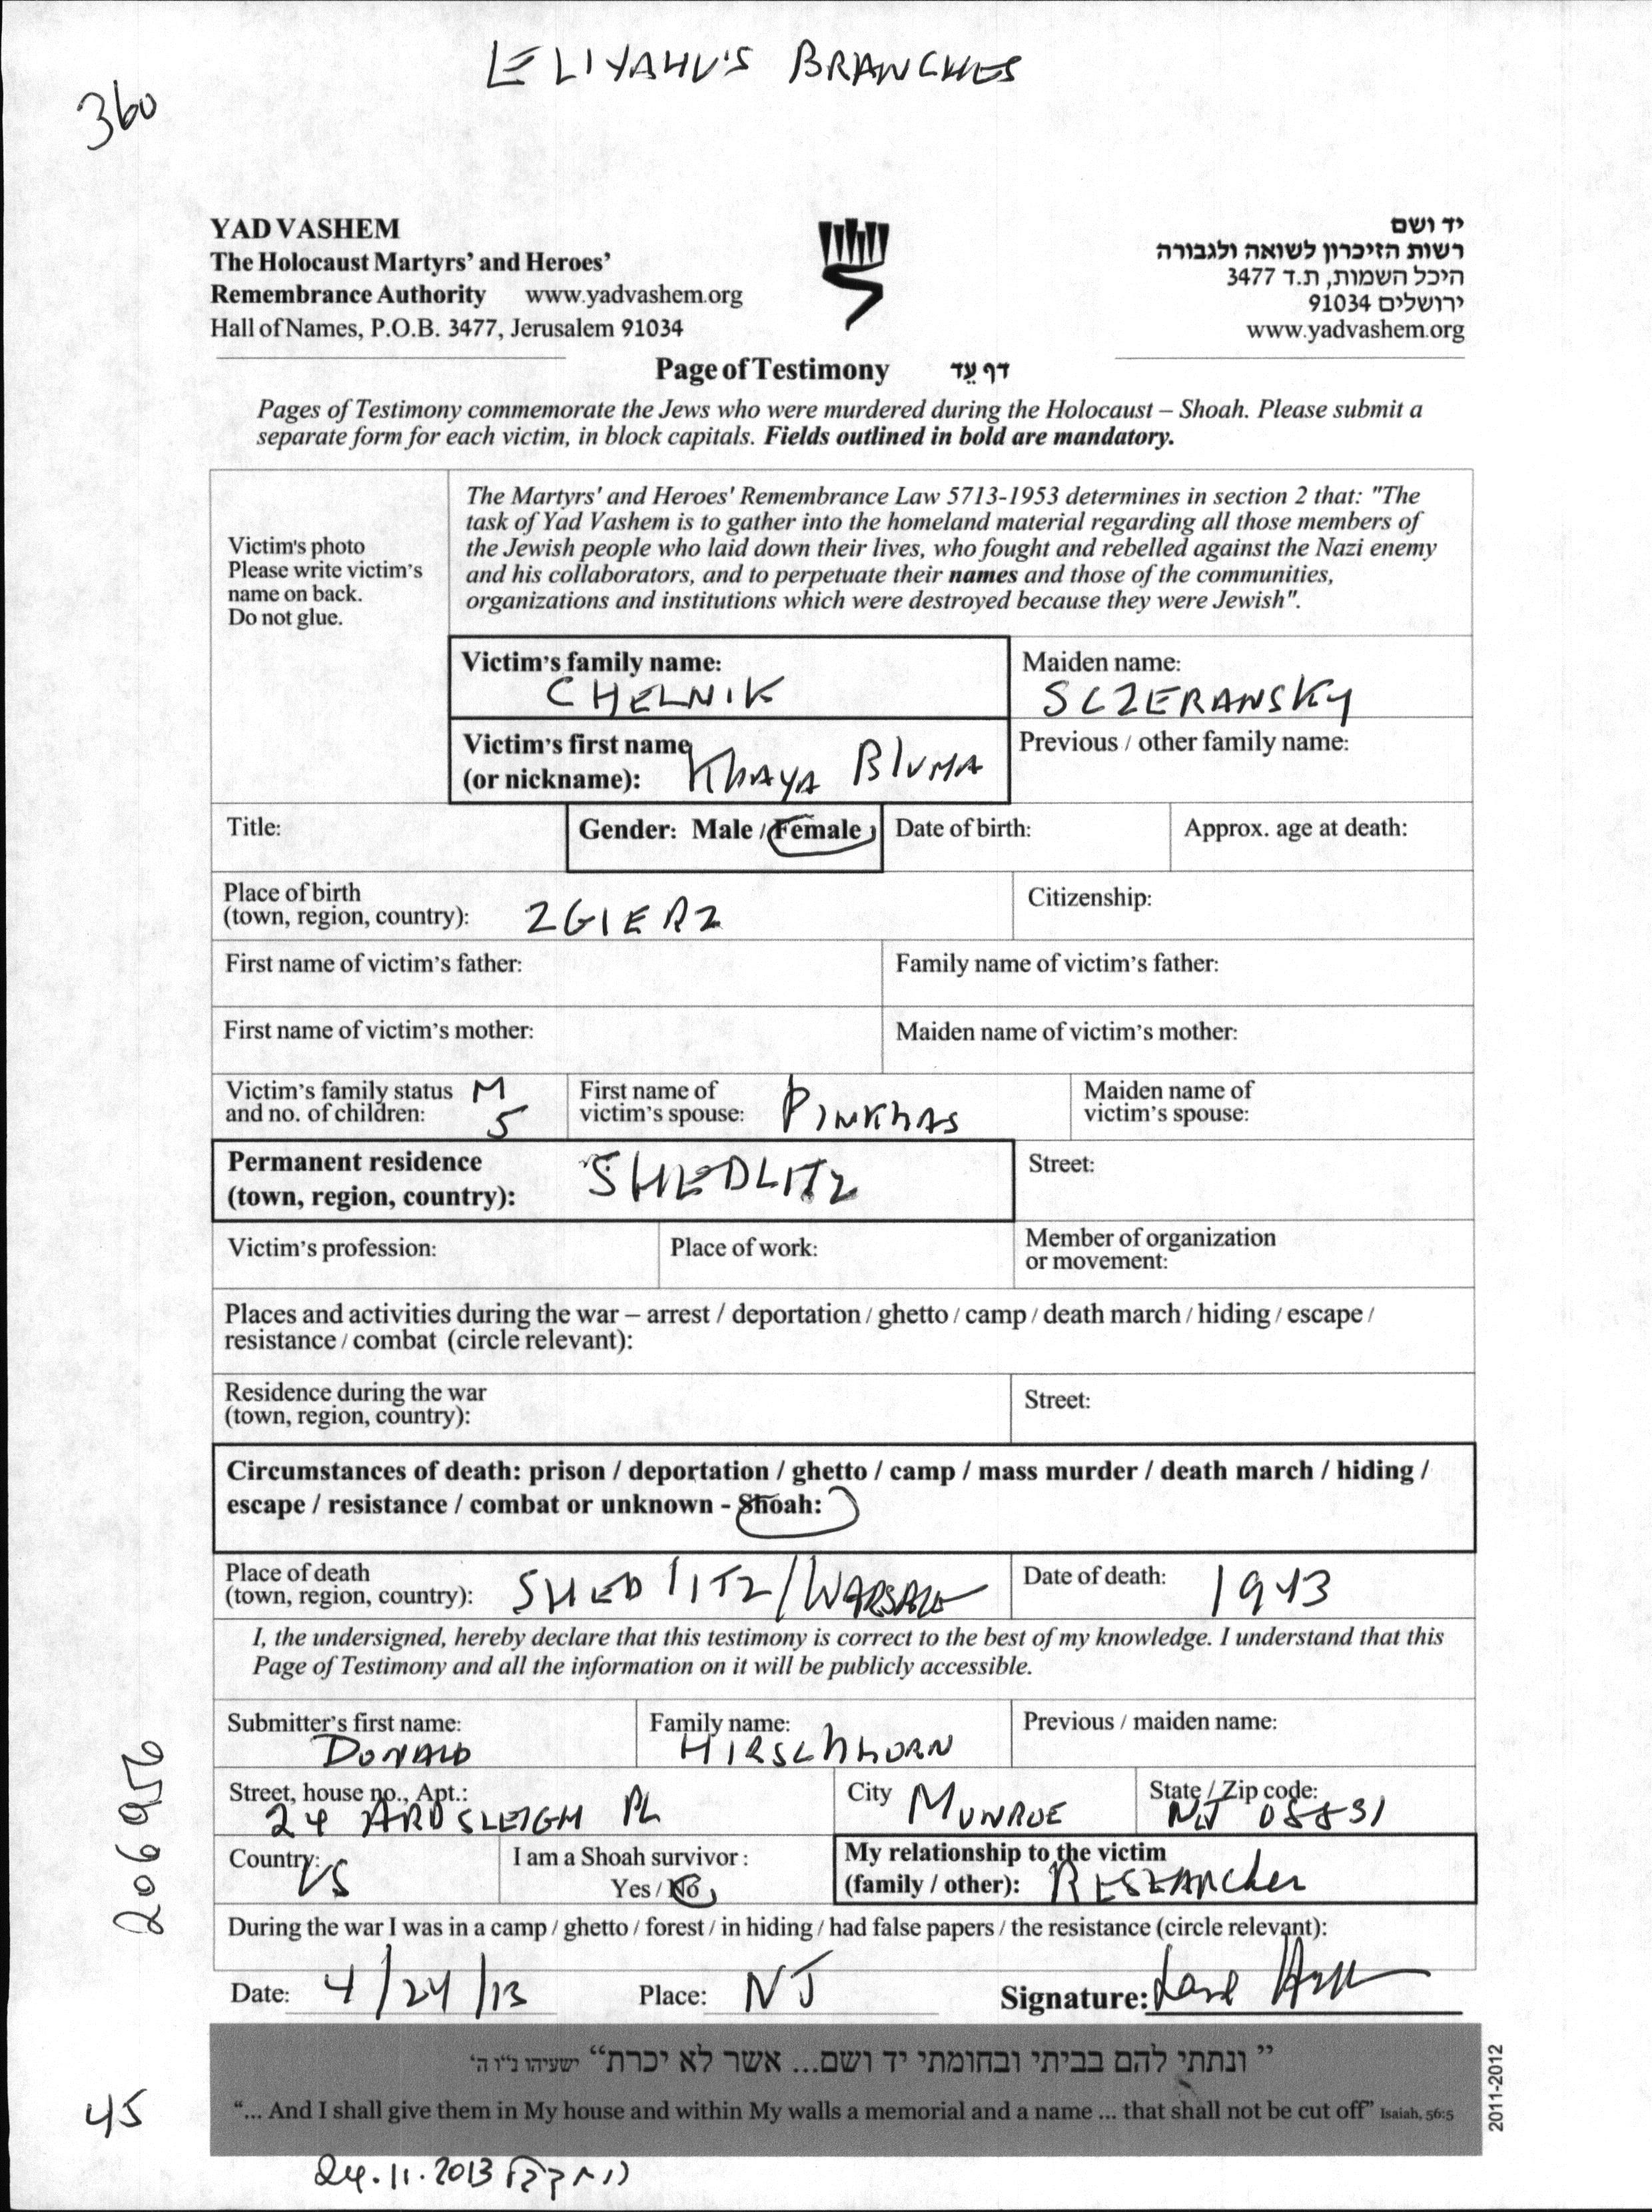 ELIYAHU'S BRANCHES
360
YAD VASHEM
The Holocaust Martyrs' and Heroes'
Remembrance Authority www.yadvashem.org
Hall of Names, P.O.B. 3477, Jerusalem 91034
יד ושם
רשות הזיכרון לשואה ולגבורה
היכל השמות, ת.ד 3477
ירושלים 91034
www.yadvashem.org
Page of Testimony דף עֵד
Pages of Testimony commemorate the Jews who were murdered during the Holocaust – Shoah. Please submit a
separate form for each victim, in block capitals. Fields outlined in bold are mandatory.
Victim's photo
Please write victim's
name on back.
Do not glue.
The Martyrs' and Heroes' Remembrance Law 5713-1953 determines in section 2 that: "The
task of Yad Vashem is to gather into the homeland material regarding all those members of
the Jewish people who laid down their lives, who fought and rebelled against the Nazi enemy
and his collaborators, and to perpetuate their names and those of the communities,
organizations and institutions which were destroyed because they were Jewish".
Victim's family name:
CHELNIK
Maiden name:
SCZERANSKY
Victim's first name
(or nickname): KhAYA BlUMA
Previous / other family name:
Title:
Gender: Male / Female
Date of birth:
Approx. age at death:
Place of birth
(town, region, country): ZGIERZ
Citizenship:
First name of victim's father:
Family name of victim's father:
First name of victim's mother:
Maiden name of victim's mother:
Victim's family status M
and no. of children: 5
First name of
victim's spouse: PINKhAS
Maiden name of
victim's spouse:
Permanent residence
(town, region, country): SHEDLITZ
Street:
Victim's profession:
Place of work:
Member of organization
or movement:
Places and activities during the war – arrest / deportation / ghetto / camp / death march / hiding / escape /
resistance / combat (circle relevant):
Residence during the war
(town, region, country):
Street:
Circumstances of death: prison / deportation / ghetto / camp / mass murder / death march / hiding /
escape / resistance / combat or unknown - Shoah:
Place of death
(town, region, country): SHEDlITZ/WARSAW
Date of death: 1943
I, the undersigned, hereby declare that this testimony is correct to the best of my knowledge. I understand that this
Page of Testimony and all the information on it will be publicly accessible.
Submitter's first name:
DONALD
Family name:
HIRSCHhORN
Previous / maiden name:
Street, house no., Apt.:
24 ARDSLEIGH PL
City MUNROE
State / Zip code:
NJ 08831
Country: US
I am a Shoah survivor :
Yes / No
My relationship to the victim
(family / other): RESEARCher
During the war I was in a camp / ghetto / forest / in hiding / had false papers / the resistance (circle relevant):
Date: 4/24/13
Place: NJ
Signature:
” ונתתי להם בביתי ובחומתי יד ושם... אשר לא יכרת“ ישעיהו נ"ו ה'
“... And I shall give them in My house and within My walls a memorial and a name ... that shall not be cut off” Isaiah, 56:5
2011-2012
206956
45
24.11.2013